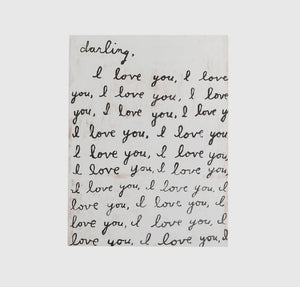 darling,
I love you, I love
you, I love you, I love
you, I love you, I love y
I love you, I love you,
I love you, I love you
I love you, I love you,
I love you, I love you, I
love you, I love you, I
love you, I love you, I
love you, I love you, I